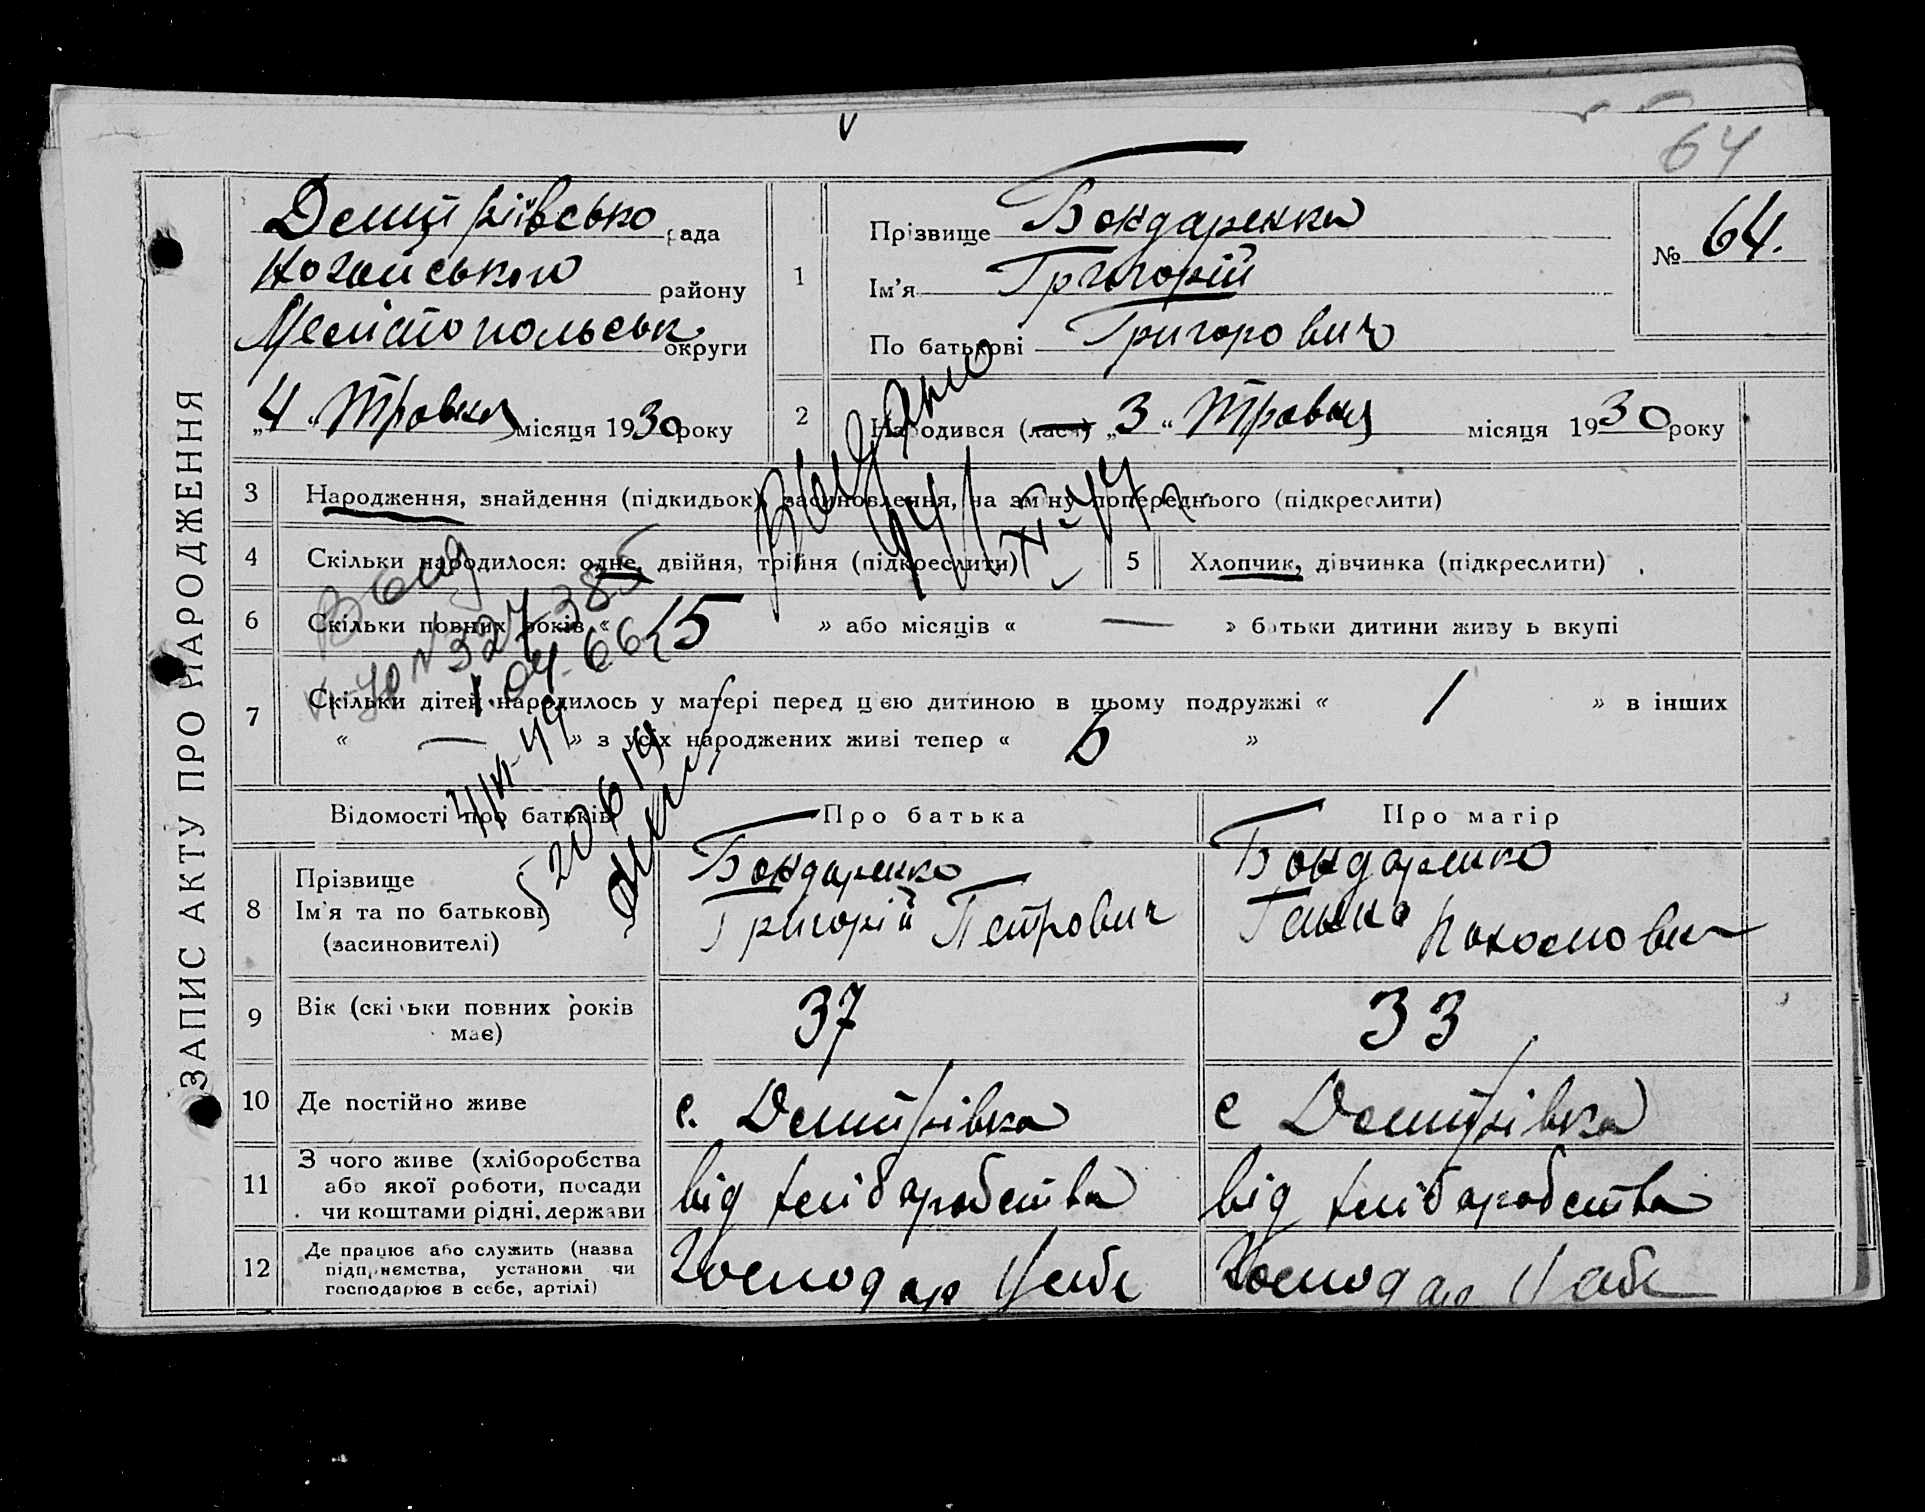 64
ЗАПИС АКТУ ПРО НАРОДЖЕННЯ
Дмитрівсько рада
Ногайського району
Мелітопольськ округи
„4“ Травня місяця 1930 року
1
Прізвище Бондаренко
Ім’я Григорій
По батькові Григорович
№ 64.
2
Народився (лась) „3“ Травня місяця 1930 року
3
Народження, знайдення (підкидьок), засиновлення, на зміну попереднього (підкреслити)
4
Скільки народилося: одне, двійня, трійня (підкреслити)
5
Хлопчик, дівчинка (підкреслити)
6
Скільки повних років « 15 » або місяців « — » батьки дитини живуть вкупі
7
Скільки дітей народилось у матері перед цією дитиною в цьому подружжі « 1 » в інших
« — » з усіх народжених живі тепер « 5 »
Видано
XI-44
№ 327385
1.04-66
20619
Відомості про батьків
Про батька
Про матір
8
Прізвище
Ім’я та по батькові
(засиновителі)
Бондаренко
Григорій Петрович
Бондаренко
Ганна
9
Вік (скільки повних років
має)
37
33
10
Де постійно живе
с. Дмитрівка
с Дмитрівка
11
З чого живе (хліборобства
або якої роботи, посади
чи коштами рідні, держави
від хліборобства
від хліборобства
12
Де працює або служить (назва
підприємства, установи чи
господарює в себе, артілі)
Господар у себе
Господар у себе